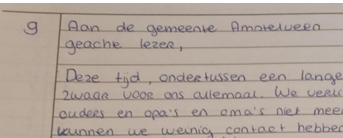 9 Aan de gemeente Amstelveen
geache lezer,
Deze tijd, ondertussen een lange
zwaar voor ons allemaal. We
ouders en opa's en oma's niet meer
kunnen we weinig contact hebben